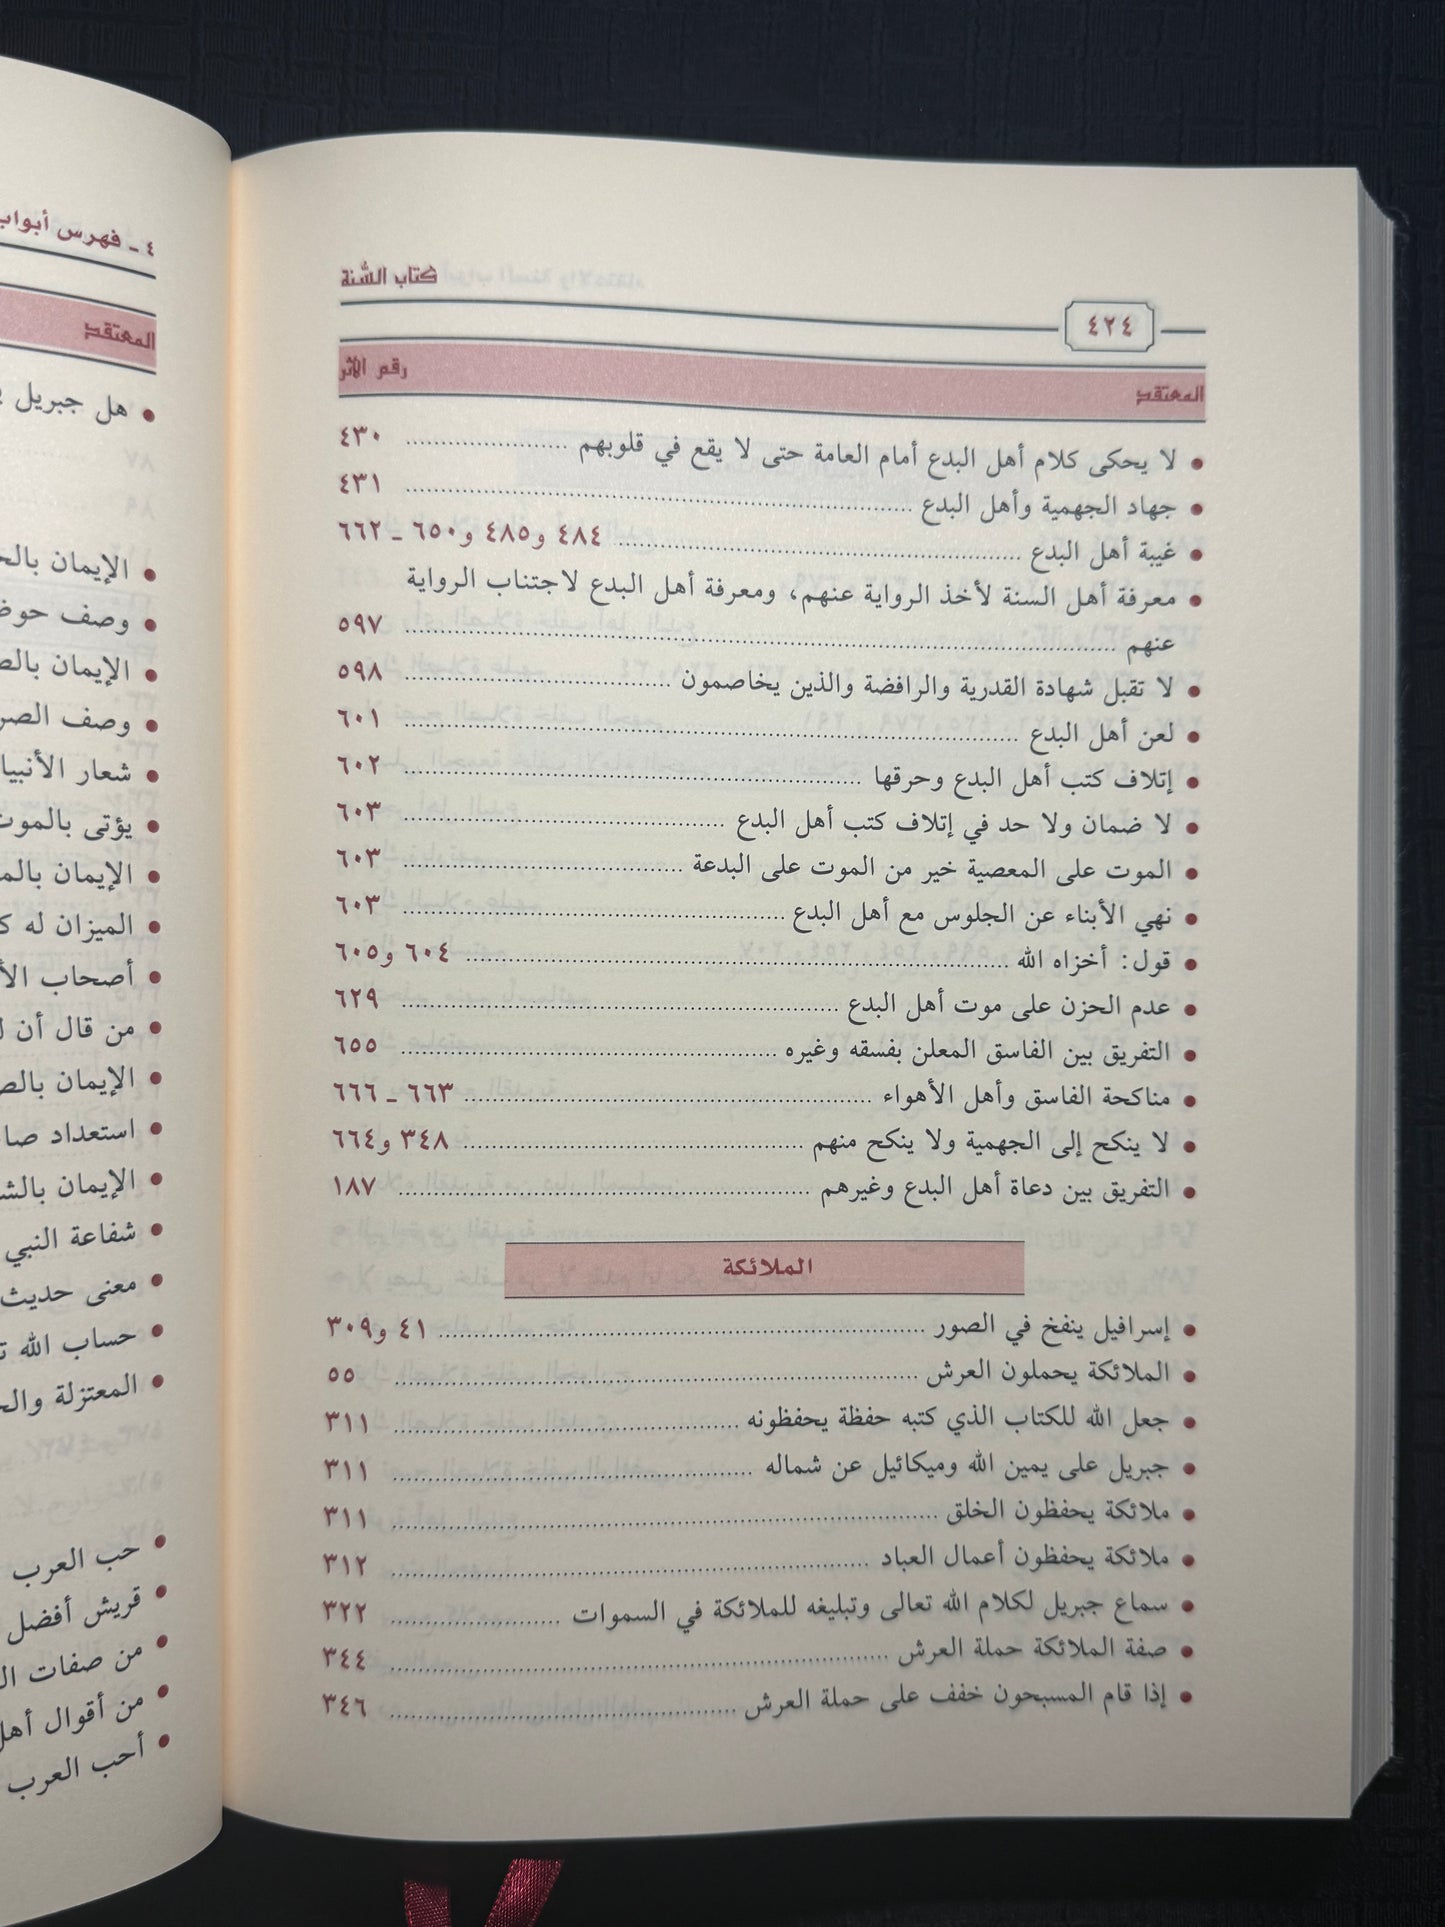 كتاب السُّنة
٤٢٤
المعتقد رقم الأثر
• لا يحكى كلام أهل البدع أمام العامة حتى لا يقع في قلوبهم ........ ٤٣٠
• جهاد الجهمية وأهل البدع ........ ٤٣١
• غيبة أهل البدع ........ ٤٨٤ و٤٨٥ و٦٥٠ ـ ٦٦٢
• معرفة أهل السنة لأخذ الرواية عنهم، ومعرفة أهل البدع لاجتناب الرواية
عنهم ........ ٥٩٧
• لا تقبل شهادة القدرية والرافضة والذين يخاصمون ........ ٥٩٨
• لعن أهل البدع ........ ٦٠١
• إتلاف كتب أهل البدع وحرقها ........ ٦٠٢
• لا ضمان ولا حد في إتلاف كتب أهل البدع ........ ٦٠٣
• الموت على المعصية خير من الموت على البدعة ........ ٦٠٣
• نهي الأبناء عن الجلوس مع أهل البدع ........ ٦٠٣
• قول: أخزاه الله ........ ٦٠٤ و٦٠٥
• عدم الحزن على موت أهل البدع ........ ٦٢٩
• التفريق بين الفاسق المعلن بفسقه وغيره ........ ٦٥٥
• مناكحة الفاسق وأهل الأهواء ........ ٦٦٣ ـ ٦٦٦
• لا ينكح إلى الجهمية ولا ينكح منهم ........ ٣٤٨ و٦٦٤
• التفريق بين دعاة أهل البدع وغيرهم ........ ١٨٧
الملائكة
• إسرافيل ينفخ في الصور ........ ٤١ و٣٠٩
• الملائكة يحملون العرش ........ ٥٥
• جعل الله للكتاب الذي كتبه حفظة يحفظونه ........ ٣١١
• جبريل على يمين الله وميكائيل عن شماله ........ ٣١١
• ملائكة يحفظون الخلق ........ ٣١١
• ملائكة يحفظون أعمال العباد ........ ٣١٢
• سماع جبريل لكلام الله تعالى وتبليغه للملائكة في السموات ........ ٣٢٢
• صفة الملائكة حملة العرش ........ ٣٤٤
• إذا قام المسبحون خفف على حملة العرش ........ ٣٤٦
٤ ـ فهرس أبواب
المعتقد
• هل جبريل
• الإيمان
• وصف
• الإيمان
• وصف
• شعار
• يؤتى بالموت
• الإيمان
• الميزان له
• أصحاب
• من قال أن
• الإيمان
• استعداد
• الإيمان
• شفاعة النبي
• معنى حديث
• حساب الله
• المعتزلة
• حب العرب
• قريش أفضل
• من صفات
• من أقوال أهل
• أحب العرب